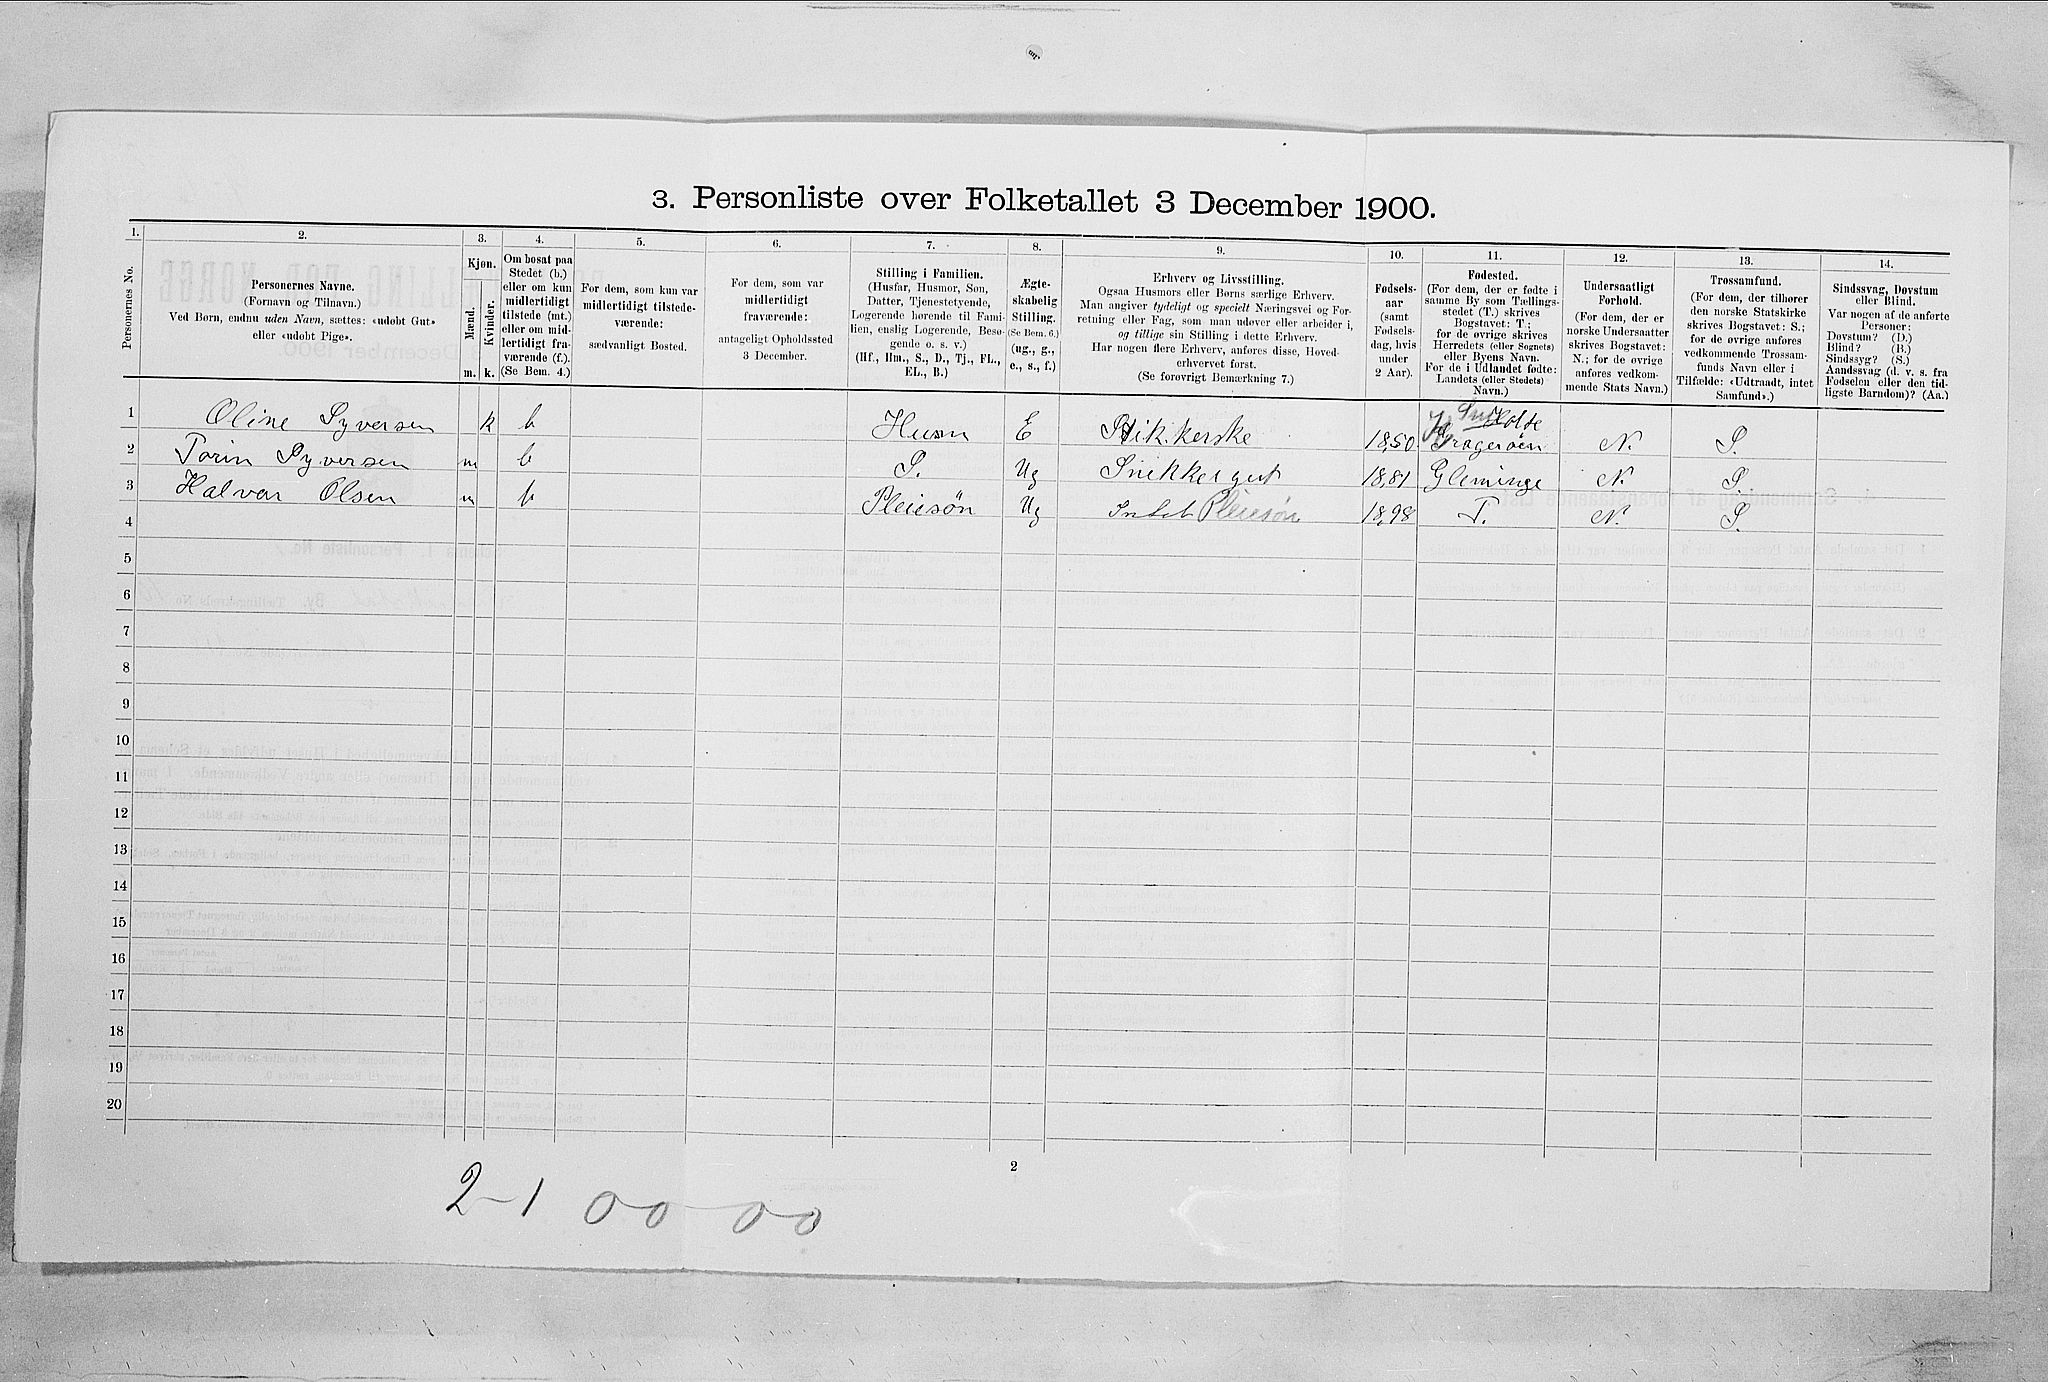 3. Personliste over Folketallet 3 December 1900.
1. 2. 3. 4. 5. 6. 7. 8. 9. 10. 11. 12. 13. 14.
Personernes No.
Personernes Navne.
(Fornavn og Tilnavn.)
Ved Børn, endnu uden Navn, sættes: «udøbt Gut»
eller «udøbt Pige».
Kjøn.
Mænd.
Kvinder.
m. k.
Om bosat paa
Stedet (b.)
eller om kun
midlertidigt
tilstede (mt.)
eller om mid-
lertidigt fra-
værende (f.).
(Se Bem. 4.)
For dem, som kun var
midlertidigt tilstede-
værende:
sædvanligt Bosted.
For dem, som var
midlertidigt
fraværende:
antageligt Opholdssted
3 December.
Stilling i Familien.
(Husfar, Husmor, Søn,
Datter, Tjenestetyende,
Logerende hørende til Fami-
lien, enslig Logerende, Besø-
gende o. s. v.)
(Hf., Hm., S., D., Tj., FL.,
EL., B.)
Ægte-
skabelig
Stilling.
(Se Bem. 6.)
(ug., g.,
e., s., f.)
Erhverv og Livsstilling.
Ogsaa Husmors eller Børns særlige Erhverv.
Man angiver tydeligt og specielt Næringsvei og For-
retning eller Fag, som man udøver eller arbeider i,
og tillige sin Stilling i dette Erhverv.
Har nogen flere Erhverv, anføres disse, Hoved-
erhvervet først.
(Se forøvrigt Bemærkning 7.)
Fødsels-
aar
(samt
Fødsels-
dag, hvis
under
2 Aar).
Fødested.
(For dem, der er fødte i
samme By som Tællings-
stedet (T.) skrives
Bogstavet: T.;
for de øvrige skrives
Herredets (eller Sognets)
eller Byens Navn.
For de i Udlandet fødte:
Landets (eller Stedets)
Navn.)
Undersaatligt
Forhold.
(For dem, der er
norske Undersaatter
skrives Bogstavet:
N.; for de øvrige
anføres vedkom-
mende Stats Navn.)
Trossamfund.
(For dem, der tilhører
den norske Statskirke
skrives Bogstavet: S.;
for de øvrige anføres
vedkommende Trossam-
funds Navn eller i
Tilfælde: «Udtraadt, intet
Samfund».)
Sindssvag, Døvstum
eller Blind.
Var nogen af de anførte
Personer:
Døvstum? (D.)
Blind? (B.)
Sindssyg? (S.)
Aandssvag (d. v. s. fra
Fødselen eller den tid-
ligste Barndom)? (Aa.)
1 Oline Syversen k b Husm E 18,50 Holde Dragerøen N. S.
2 Torin Syversen m b S. Ug Snekkergut 18,81 Gleminge N. S.
3 Halvar Olsen m b Pleiesøn Ug Intet Pleiesøn 18,98 T. N. S.
4
5
6
7
8
9
10
11
12
13
14
15
16
17
18
19
20
2
2-1 00 00